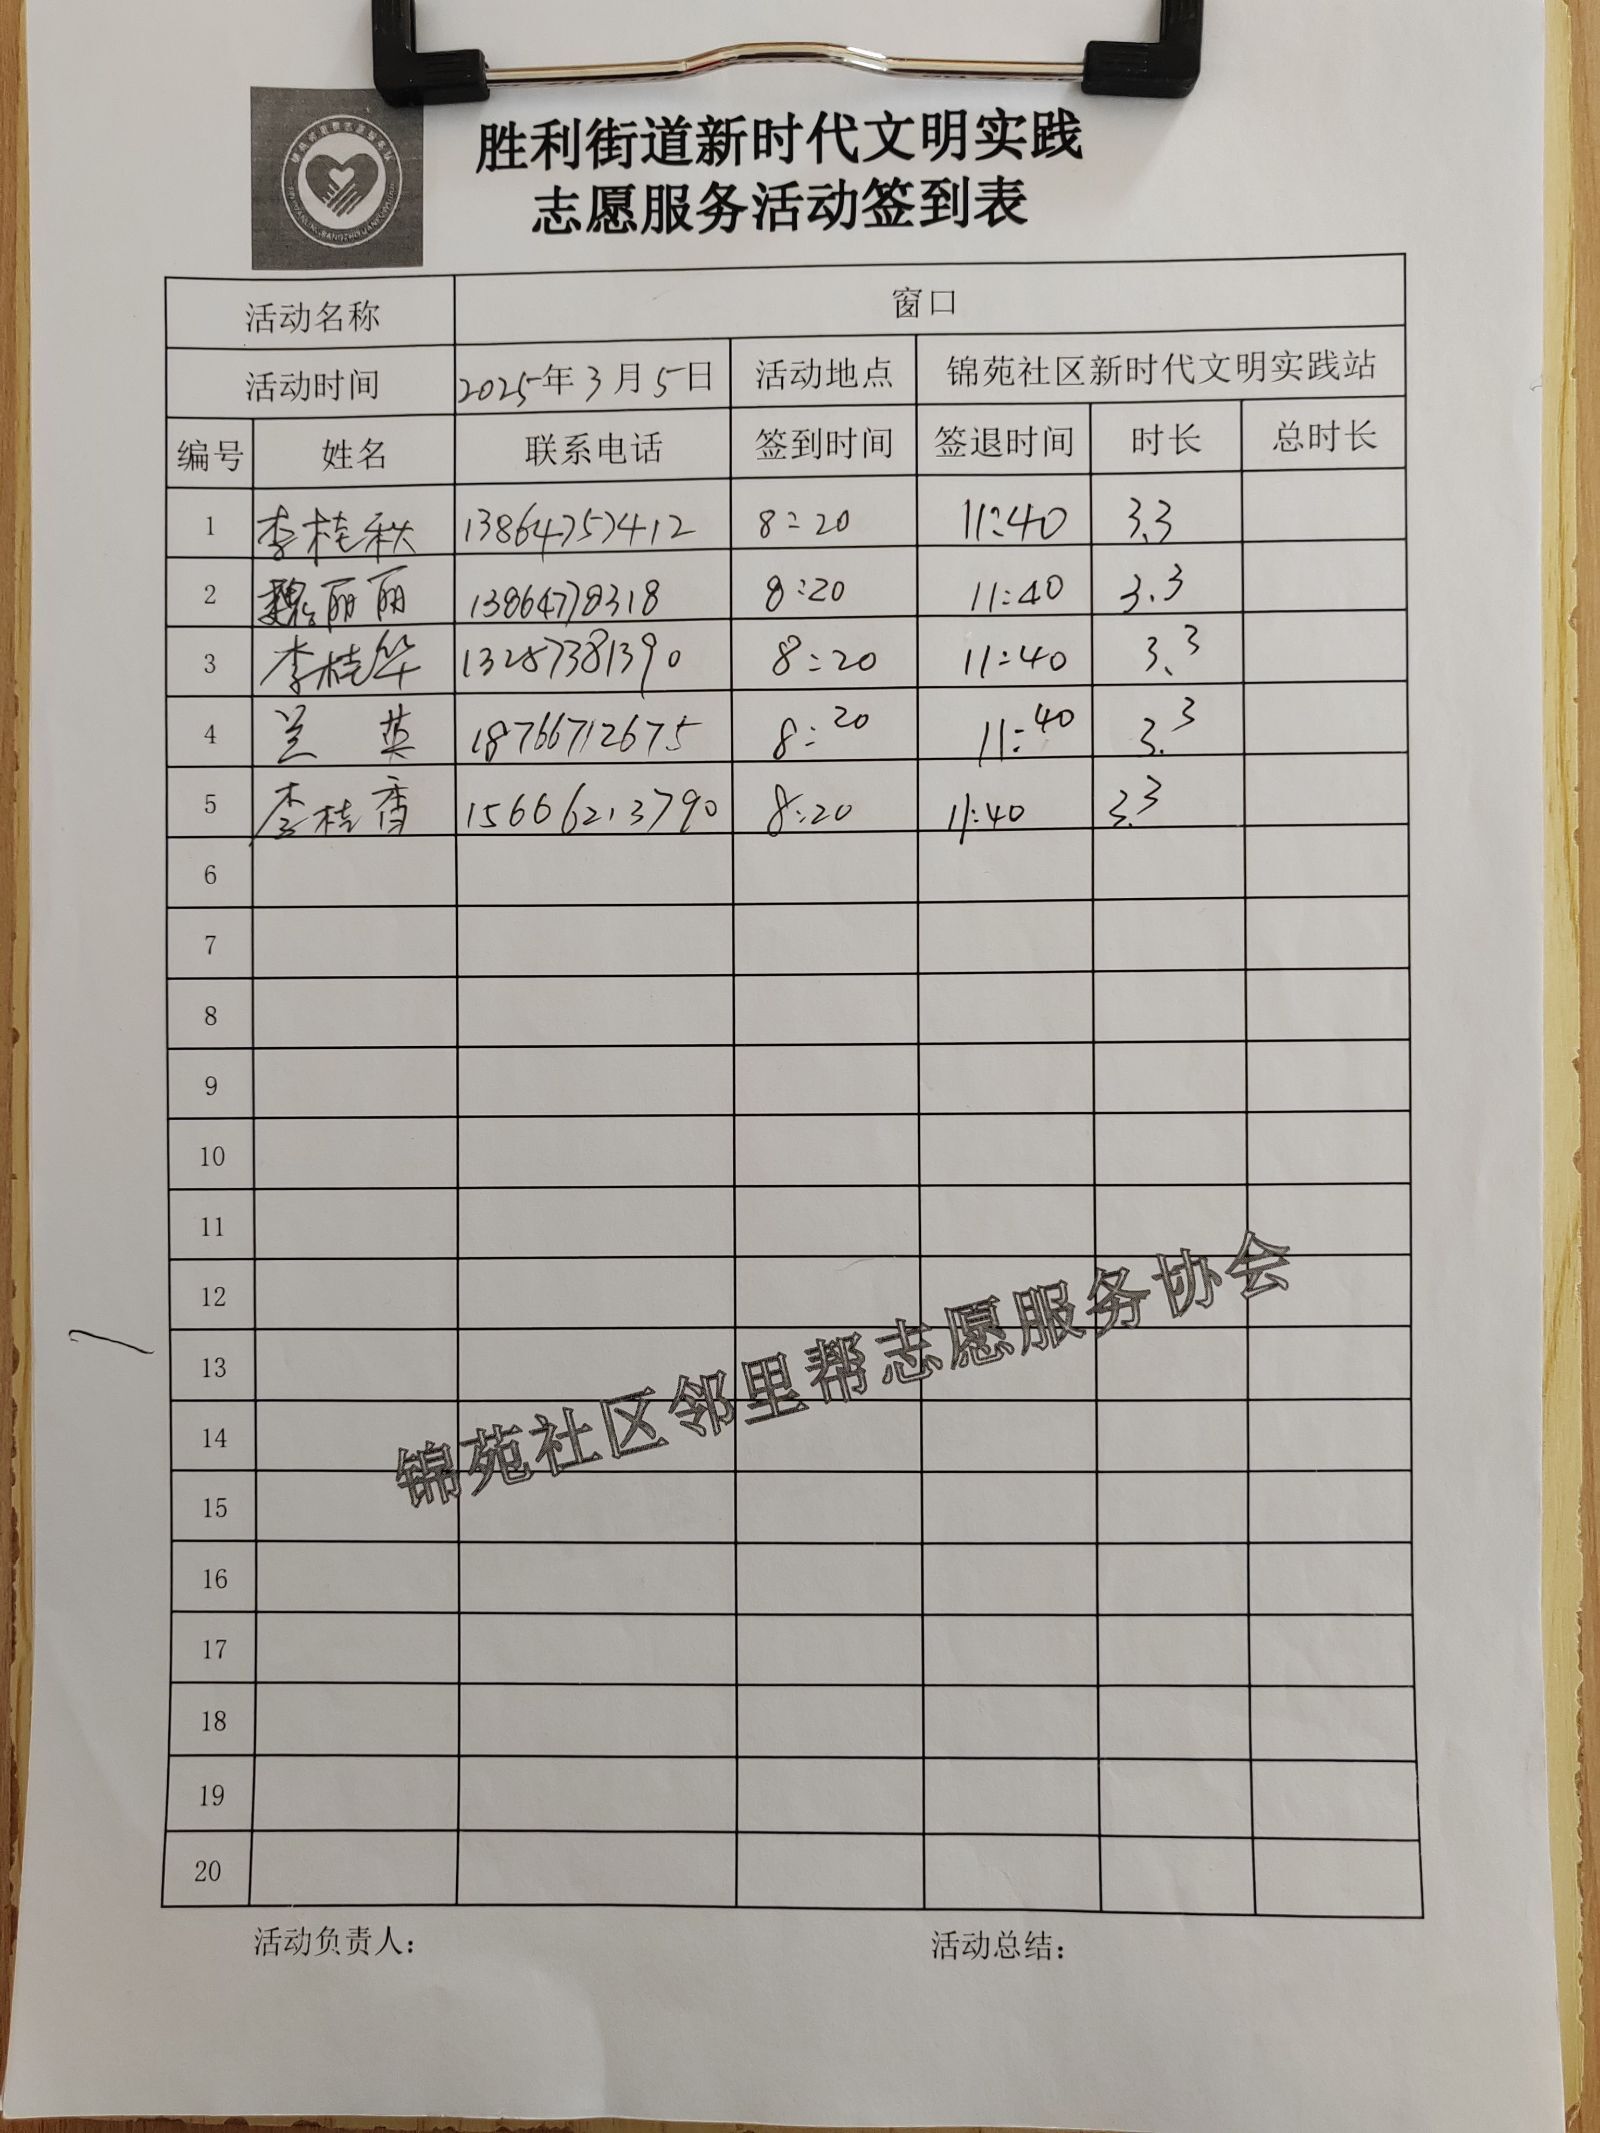 胜利街道新时代文明实践
志愿服务活动签到表
活动名称 窗口
活动时间 2025年3月5日 活动地点 锦苑社区新时代文明实践站
编号 姓名 联系电话 签到时间 签退时间 时长 总时长
1 李桂秋 13864757412 8:20 11:40 3.3
2 魏丽丽 13864778318 8:20 11:40 3.3
3 李桂华 13287381390 8:20 11:40 3.3
4 兰英 18766712675 8:20 11:40 3.3
5 李桂香 15606213790 8:20 11:40 3.3
6
7
8
9
10
11
12
13
14
15
16
17
18
19
20
锦苑社区邻里帮志愿服务协会
活动负责人： 活动总结：